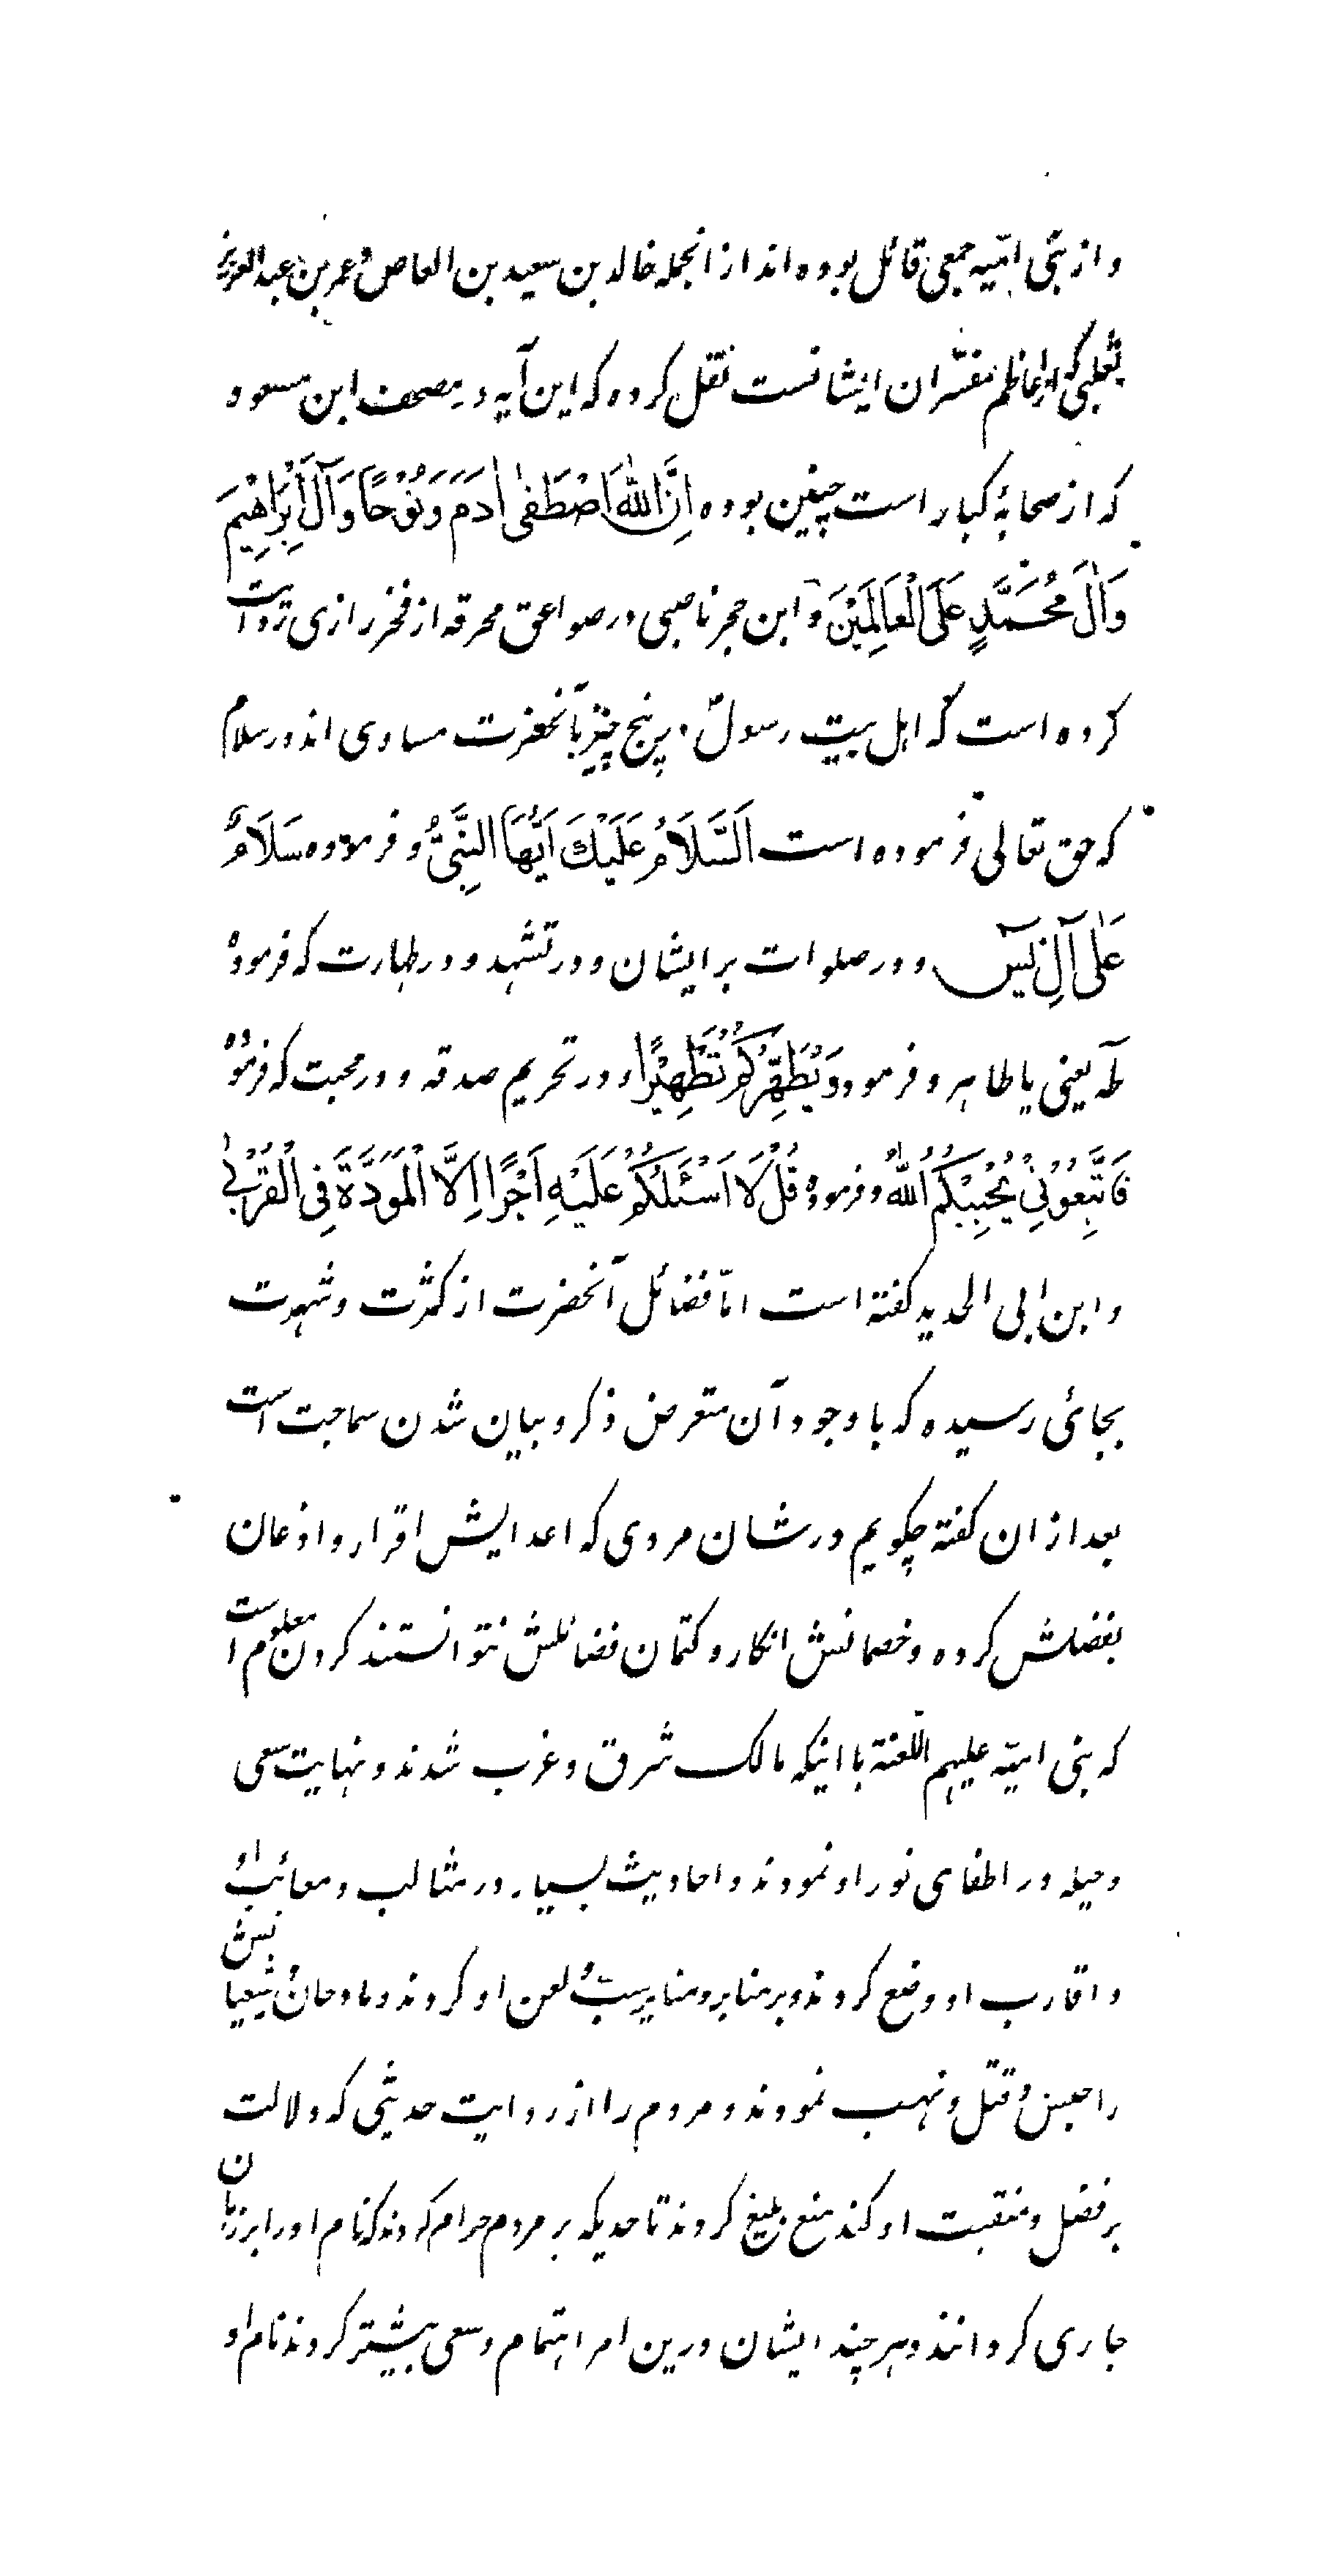 و از بنی امّیه جمعی قائل بوده اند از انجمله خالد بن سعید بن العاص و عمر بن عبد العزیز
ثعلبی که از اعاظم مفسّران ایشانست نقل کرده که این آیه در مصحف ابن مسعود
که از صحابهٔ کبار است چنین بوده اِنَّ اللّٰهَ اصْطَفٰی اٰدَمَ وَ نُوْحًا وَ آلَ اِبْرَاهِیْمَ
وَ اٰلَ مُحَمَّدٍ عَلَی الْعَالَمِیْنَ و ابن حجر ناصبی در صواعق محرقه از فخر رازی روایت
کرده است که اهل بیت رسول در پنج چیز بآنحضرت مساوی اند در سلام
که حق تعالی فرموده است اَلسَّلَامُ عَلَیْكَ اَیُّهَا النَّبِیُّ و فرموده سَلَامٌ
عَلٰی آلِ یٰسٓ و در صلوات بر ایشان و در تشهد و در طهارت که فرموده
طٰهٰ یعنی یا طاهر و فرمود وَ یُطَهِّرَکُمْ تَطْهِیْرًا و در تحریم صدقه و در محبت که فرموده
فَاتَّبِعُوْنِیْ یُحْبِبْکُمُ اللّٰهُ و فرموده قُلْ لَا اَسْئَلُکُمْ عَلَیْهِ اَجْرًا اِلَّا الْمَوَدَّةَ فِی الْقُرْبٰی
و ابن ابی الحدید گفته است امّا فضائل آنحضرت از کثرت و شهرت
بجائی رسیده که با وجود آن متعرض ذکر و بیان شدن سماجت است
بعد از ان گفته چگویم در شان مردی که اعدایش اقرار و اذعان
بفضلش کرده و خصمانش انکار و کتمان فضائلش نتوانستند کردن معلوم است
که بنی امیّه علیهم اللعنة با اینکه مالک شرق و غرب شدند و نهایت سعی
و حیله در اطفای نور او نمودند و احادیث بسیار در مثالب و معائب او
و اقارب او وضع کردند و بر منابر و منابر سبّ و لعن او کردند و مادحان و شیعیانش
را حبس و قتل و نهب نمودند و مردم را از روایت حدیثی که دلالت
بر فضل و منقبت او کند منع بلیغ کردند تا حدیکه بر مردم حرام کردند که نام او را بر زبان
جاری کردانند و هر چند ایشان درین امر اهتمام و سعی بیشتر کردند نام او